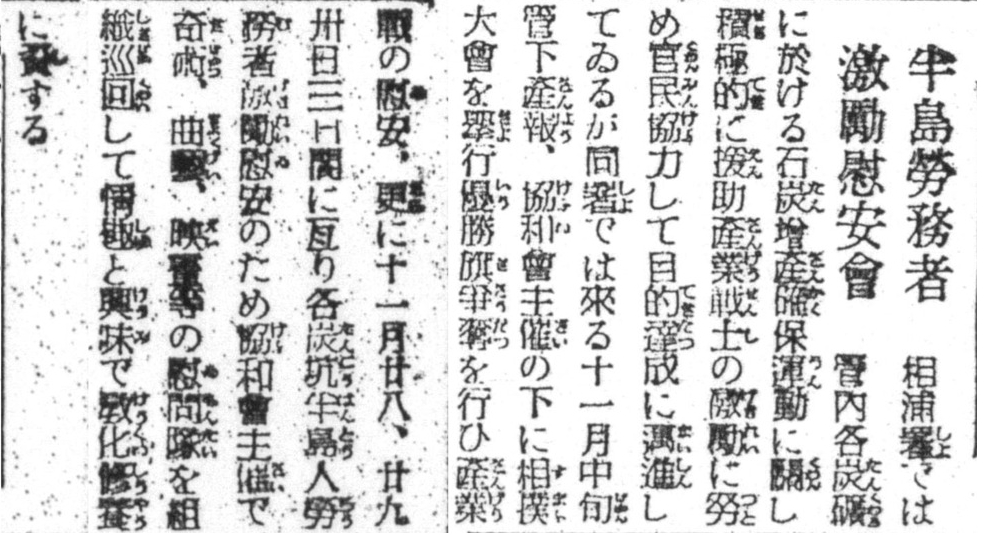 半島勞務者
激勵慰安會
相浦署では
管内各炭礦
に於ける石炭增產確保運動に關し
積極的に援助產業戰士の激勵に勞
め官民協力して目的達成に邁進し
てゐるが同署では來る十一月中旬
管下產報、協和會主催の下に相撲
大會を擧行優勝旗爭奪を行ひ產業
戰の慰安、更に十一月廿八、廿九
卅日三日間に亙り各炭坑半島人勞
務者激勵慰安のため協和會主催で
奇術、曲藝、映畫等の慰問隊を組
織巡回して情趣と興味で敎化修養
に資する